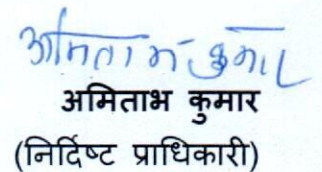 अमिताभ कुमार
अमिताभ कुमार
(निर्दिष्ट प्राधिकारी)